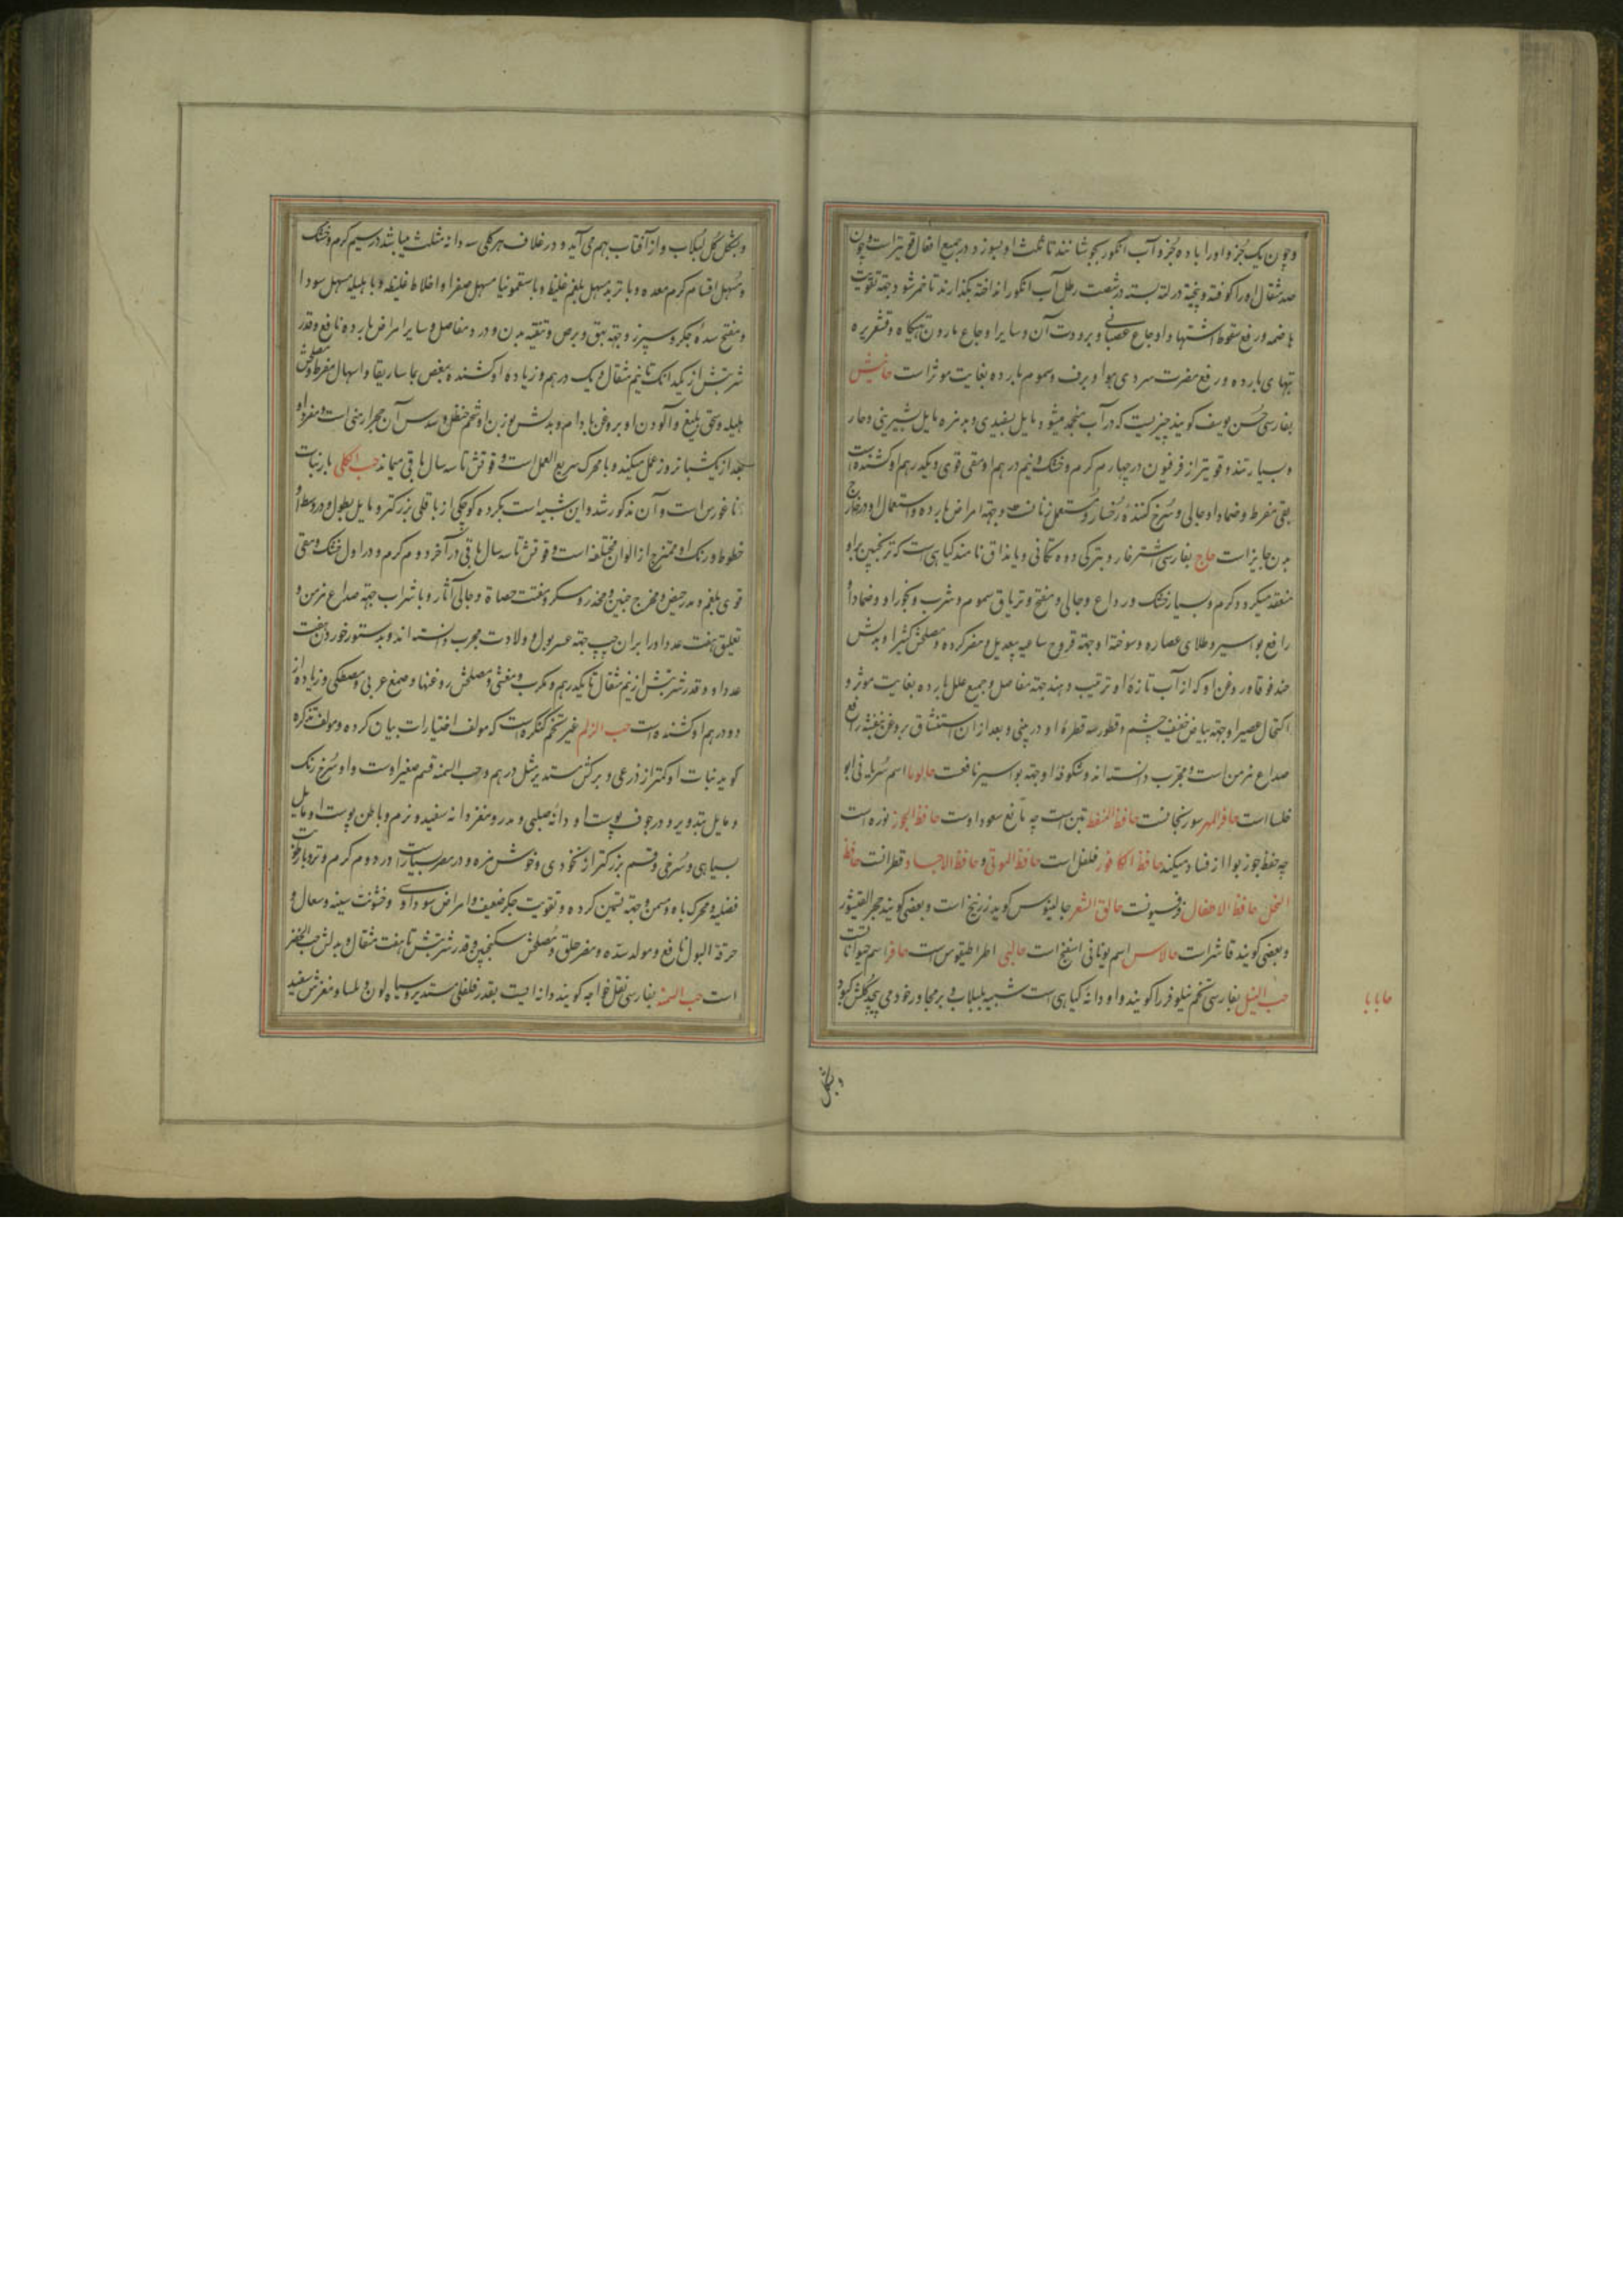 و چون یک جزو او را با ده جزو آب انگور بجوشانند تا ثلث او بسوزد در جمیع افعال قویتر است و چون
صد مثقال او را کوفته و بیخته در لته بسته در شصت رطل آب انگور انداخته بگذارند تا خمر شود جهة تقویت
هاضمه و رفع سقوط اشتها و اوجاع عصبانی و برودت آن و سایر اوجاع بارده و تهیگاه و قشعریره
تبهای بارده و رفع مضرت سردی هوا و برف و سموم بارده بغایت موثر است
بفارسی حسن یوسف کویند چیزیست که در آب منجمد میشود مایل بسفیدی و بدمزه و مایل بشیرینی و حار
و بسیار تند و قویتر از فرفیون در چهارم کرم و خشک و نیم درهم او مقی قوی و یکدرهم او کشنده است
بقی مفرط و ضماد او جالی و سرخ کننده رخسار و مستعمل زنانست و جهة امراض بارده و استعمال او در خارج
بدن جایز است حاج بفارسی اشترخار و بترکی دوه تکانی و یابذاق نامند کیاهی است که ترنجبین بر او
منعقد میگردد کرم و بسیار خشک و رداع و جالی و مفتح و تریاق سموم و شرب و بخور او و ضمادا
رافع بواسیر و طلای عصاره و سوخته او جهة قروح ساعیه بیعدیل و مضر کرده و مصلحش کثیرا و بدلش
حندقوقا و روغن او که از آب تازه او ترتیب دهند جهة مفاصل و جمیع علل بارده بغایت موثر و
اکتحال عصیر او جهة بیاض خفیف چشم و قطور سه قطره او در بینی و بعد از آن استنشاق بروغن بنفشه رافع
صداع مزمن است و مجرب دانسته اند و شکوفه او جهة بواسیر نافعست حالوما اسم سریانی ابو
خلسا است حافر المهر سورنجانست حافظ النفط تبن است چه مانع صعود اوست حافظ الجوز نوره است
چه حفظ جوز بوا از فساد میکند حافظ الکافور فلفل است حافظ الموتی و حافظ الاجساد قطرانست حافظ
النحل حافظ الاطفال حالق الشعر جالینوس کوید زرنیخ است و بعضی کویند حجر القیشور
و بعضی کویند فاشراست حالاس اسم یونانی اسفنج است حالبی اطراطیقوس است حافر اسم حیواناتست
حب النیل بفارسی تخم نیلوفر را کویند و او دانه کیاهی است شبیه بلبلاب و بر مجاور خود می پیچد کلش کبود
حابابا
و بشکل
و بشکل کل لبلاب و از آفتاب بهم می آید و در غلاف هر کلی سه دانه مثلث میباشد در سیم کرم و خشک
و مسهل اقسام کرم معده و با تربد مسهل بلغم غلیظ و با سقمونیا مسهل صفرا و اخلاط غلیظه و با هلیله مسهل سودا
و مفتح سده جکر و سپرز و جهة بهق و برص و تنقیه بدن و درد مفاصل و سایر امراض بارده نافع و قدر
شربتش از یکدانک تا نیم مثقال و یک درهم و زیاده او کشنده بمغص بماساریقا و اسهال مفرط و مصلحش
هلیله و سحق بلیغ و آلودن او بروغن بادام و بدلش بوزن او شحم حنظل و سدس آن حجر ارمنی است و مفرد او
بعد از یکشبانروز عمل میکند و با محرک سریع العمل است و قوتش تا سه سال باقی میماند حب الکلی بار نبات
اناغورس است و آن مذکور شد و این شبیه است بکرده کوچکی از باقلی بزرکتر و مایل بطول و در وسط او
خطوط و رنک او ممتزج از الوان مختلفه است و قوتش تا سه سال باقی در آخر دوم کرم و در اول خشک و مقی
قوی بلغم و مدر حیض و مخرج جنین و مخدر و مسکر و مفتت حصاة و جالی آثار و با شراب جهة صداع مزمن و
تعلیق هفت عدد او را بر ران چپ جهة عسر بول و ولادت مجرب دانسته اند و بدستور خوردن هفت
عدد او و قدر شربتش از نیم مثقال تا یکدرهم و مکرب و مغثی و مصلحش روغنها و صمغ عربی و مصطکی و زیاده از
دو درهم او کشنده است حب الزلم غیر تخم کنکر است که مولف اختیارات بیان کرده و مولف تذکره
کوید نبات او کمتر از ذرعی و برکش مستدیر مثل درهم و حب السمنه قسم صغیر اوست و او سرخ رنک
و مایل بتدویر و در جوف پوست او دانه صلبی و مدر و مغز دانه سفید و نرم و باطن پوست او مایل
بسیاهی و سرخی و قسم بزرکتر از نخودی و خوش مزه و در مصر بسیار است در دوم کرم و تر و با رطوبت
فضلیه و محرک باه و مسمن و جهة تسمین کرده و تقویت جکر ضعیف و امراض سوداوی و خشونت سینه و سعال و
حرقة البول نافع و مولد سده و مضر حلق و مصلحش سکنجبین و قدر شربتش تا هفت مثقال و بدلش حب الخضر
است حب السمنه بفارسی نقل خواجه کویند دانه ایست بقدر فلفلی مستدیر و سیاه لون و املسا و مغزش سفید